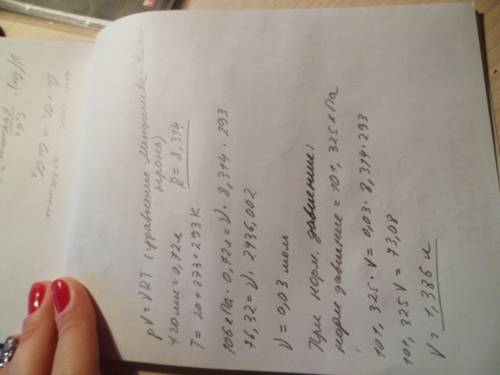 pV = νRT (уравнение Менделеева-Клапейрона)
720 мл = 0,72 л R = 8,314
T = 20 + 273 = 293 K
106 кПа · 0,72 л = ν · 8,314 · 293
76,32 = ν · 2436,002
ν = 0,03 моль
При норм. давлении:
норм давление = 101,325 кПа
101,325 · V = 0,03 · 8,314 · 293
101,325 V = 73,08
V = 1,386 л